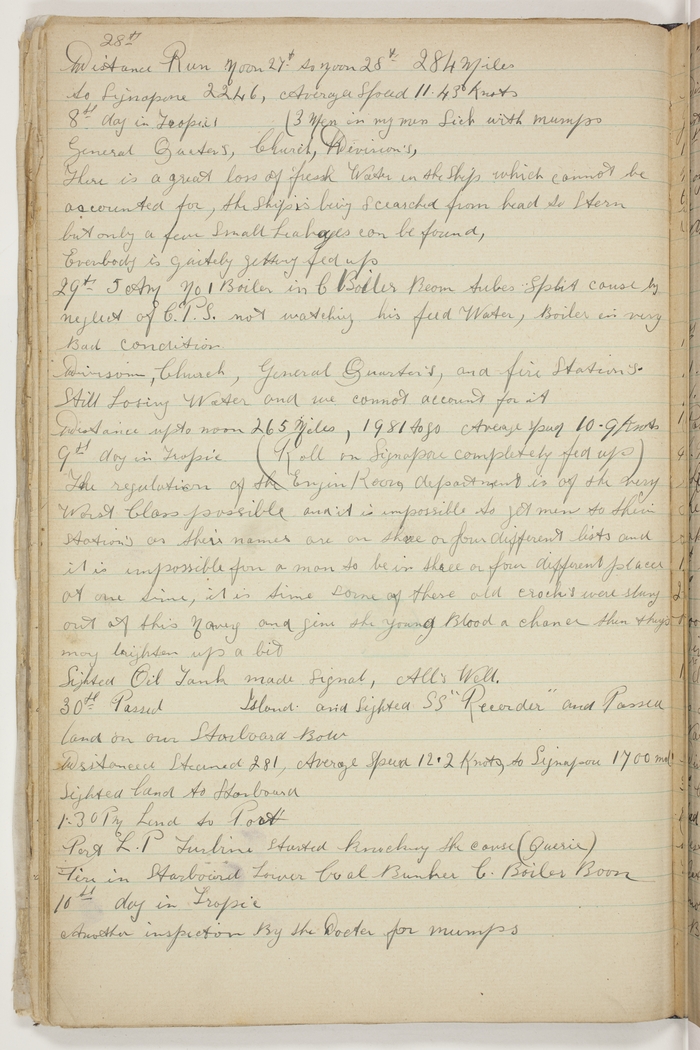 28th
Distance Run Noon 27th to Noon 28th 284 Miles
to Signapore 2246, Average Speed 11.43 Knots
8th day in Tropics (3 Men in my mess Sick with mumps
General Quarters, Church, Division's,
There is a great loss of fresh Water in the Ship which cannot be
accounted for, the Ship's being searched from head to Stern
but only a few Small Leakages can be found,
Everybody is gaitely getting fed up
29th 5 Am No 1 Boiler in C Boiler Room tubes Split cause by
neglect of C.P.S. not watching his feed Water, Boiler in very
Bad condition
Division, Church, General Quarter's, and fire Station's.
Still Losing Water and we cannot account for it
Distance up to noon 265 Miles, 1981 to go Average speed 10.9 Knots
9th day in Tropic (Roll on Signapore completely fed up)
The regulation of the Engin Room department is of the very
Worst Class possible and it is impossible to get men to their
station's as their names are on three or four different lists and
it is impossible for a man to be in three or four different places
at one time, it is time some of these old crock's were slung
out of this Navey and give the young Blood a chance then things
may brighten up a bit
Sighted Oil Tank made Signal, All's Well.
30th Passed Island and Sighted SS "Recorder" and Passed
land on our Starboard Bow
Distanced Steamed 281, Average Speed 12.2 Knots, to Signapou 1700 mls
Sighted land to Starboard
1.30 Pm Land to Port
Port L.P Turbine started knocking the cause (Querie)
Fire in Starboard Lower Coal Bunker C. Boiler Room
10th day in Tropic
Another inspection By the Docter for mumps